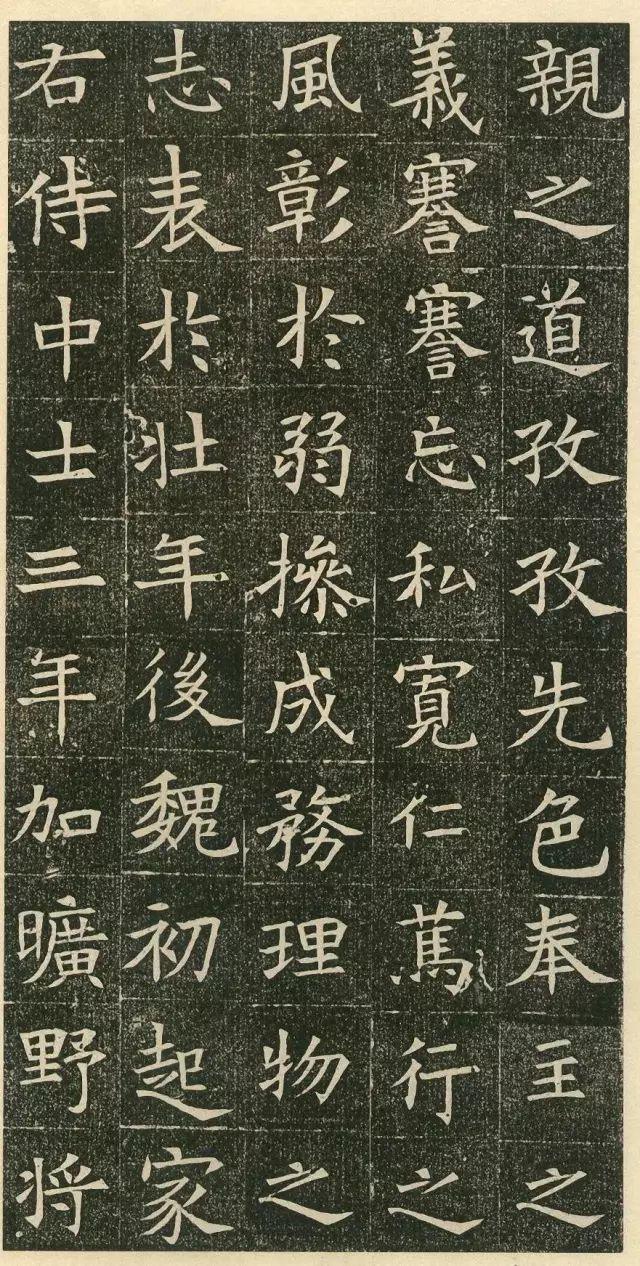 親之道孜孜先色奉主之
義謇謇忘私寬仁篤行之
風彰於弱操成務理物之
志表於壯年後魏初起家
右侍中士三年加曠野將